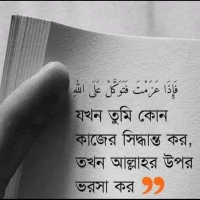 فَإِذَا عَزَمْتَ فَتَوَكَّلْ عَلَى اللهِ
যখন তুমি কোন
কাজের সিদ্ধান্ত কর,
তখন আল্লাহর উপর
ভরসা কর ”